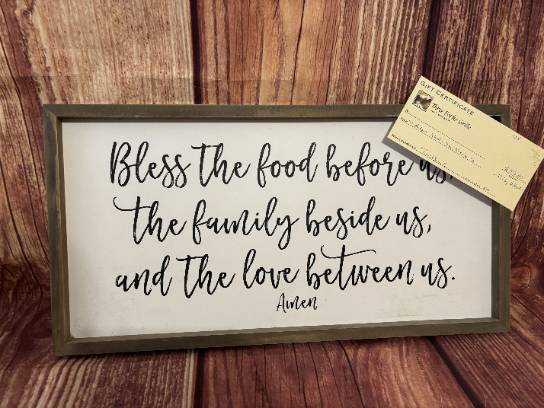 Bless the food before us,
the family beside us,
and the love between us.
Amen
GIFT CERTIFICATE